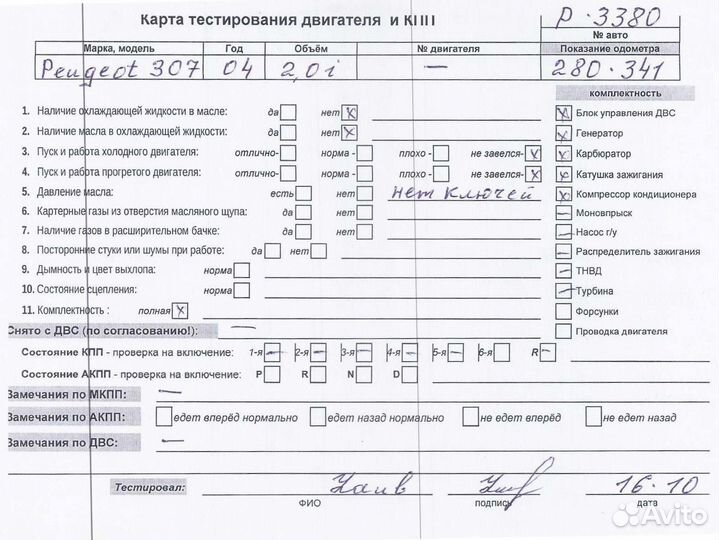 Карта тестирования двигателя и КПП
Р-3380
№ авто
Марка, модель Год Объём № двигателя Показание одометра
Peugeot 307 04 2,0i — 280.341
комплектность
1. Наличие охлаждающей жидкости в масле: да нет X
2. Наличие масла в охлаждающей жидкости: да нет X
3. Пуск и работа холодного двигателя: отлично- норма - плохо - не завелся- V
4. Пуск и работа прогретого двигателя: отлично- норма - плохо - не завелся- X
5. Давление масла: есть нет нет ключей
6. Картерные газы из отверстия масляного щупа: да нет
7. Наличие газов в расширительном бачке: да нет
8. Посторонние стуки или шумы при работе: да нет
9. Дымность и цвет выхлопа: норма
10. Состояние сцепления: норма
11. Комплектность : полная X
X Блок управления ДВС
X Генератор
X Карбюратор
X Катушка зажигания
X Компрессор кондиционера
— Моновпрыск
— Насос г/у
— Распределитель зажигания
— ТНВД
— Турбина
Форсунки
Проводка двигателя
Снято с ДВС (по согласованию!): —
Состояние КПП - проверка на включение: 1-я — 2-я — 3-я — 4-я — 5-я — 6-я R —
Состояние АКПП - проверка на включение: P R N D
Замечания по МКПП: —
Замечания по АКПП: едет вперёд нормально едет назад нормально не едет вперёд не едет назад
Замечания по ДВС: —
Тестировал: 16.10
ФИО подпись дата
Avito